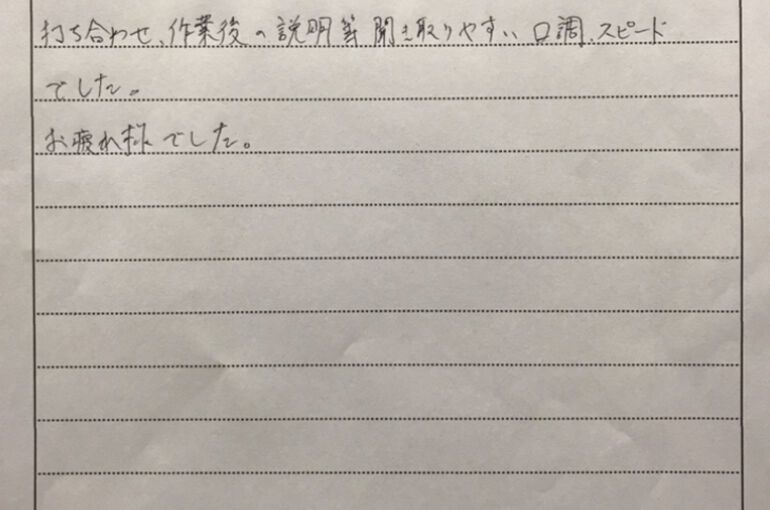 打ち合わせ、作業後の説明等聞き取りやすい口調、スピード
でした。
お疲れ様でした。